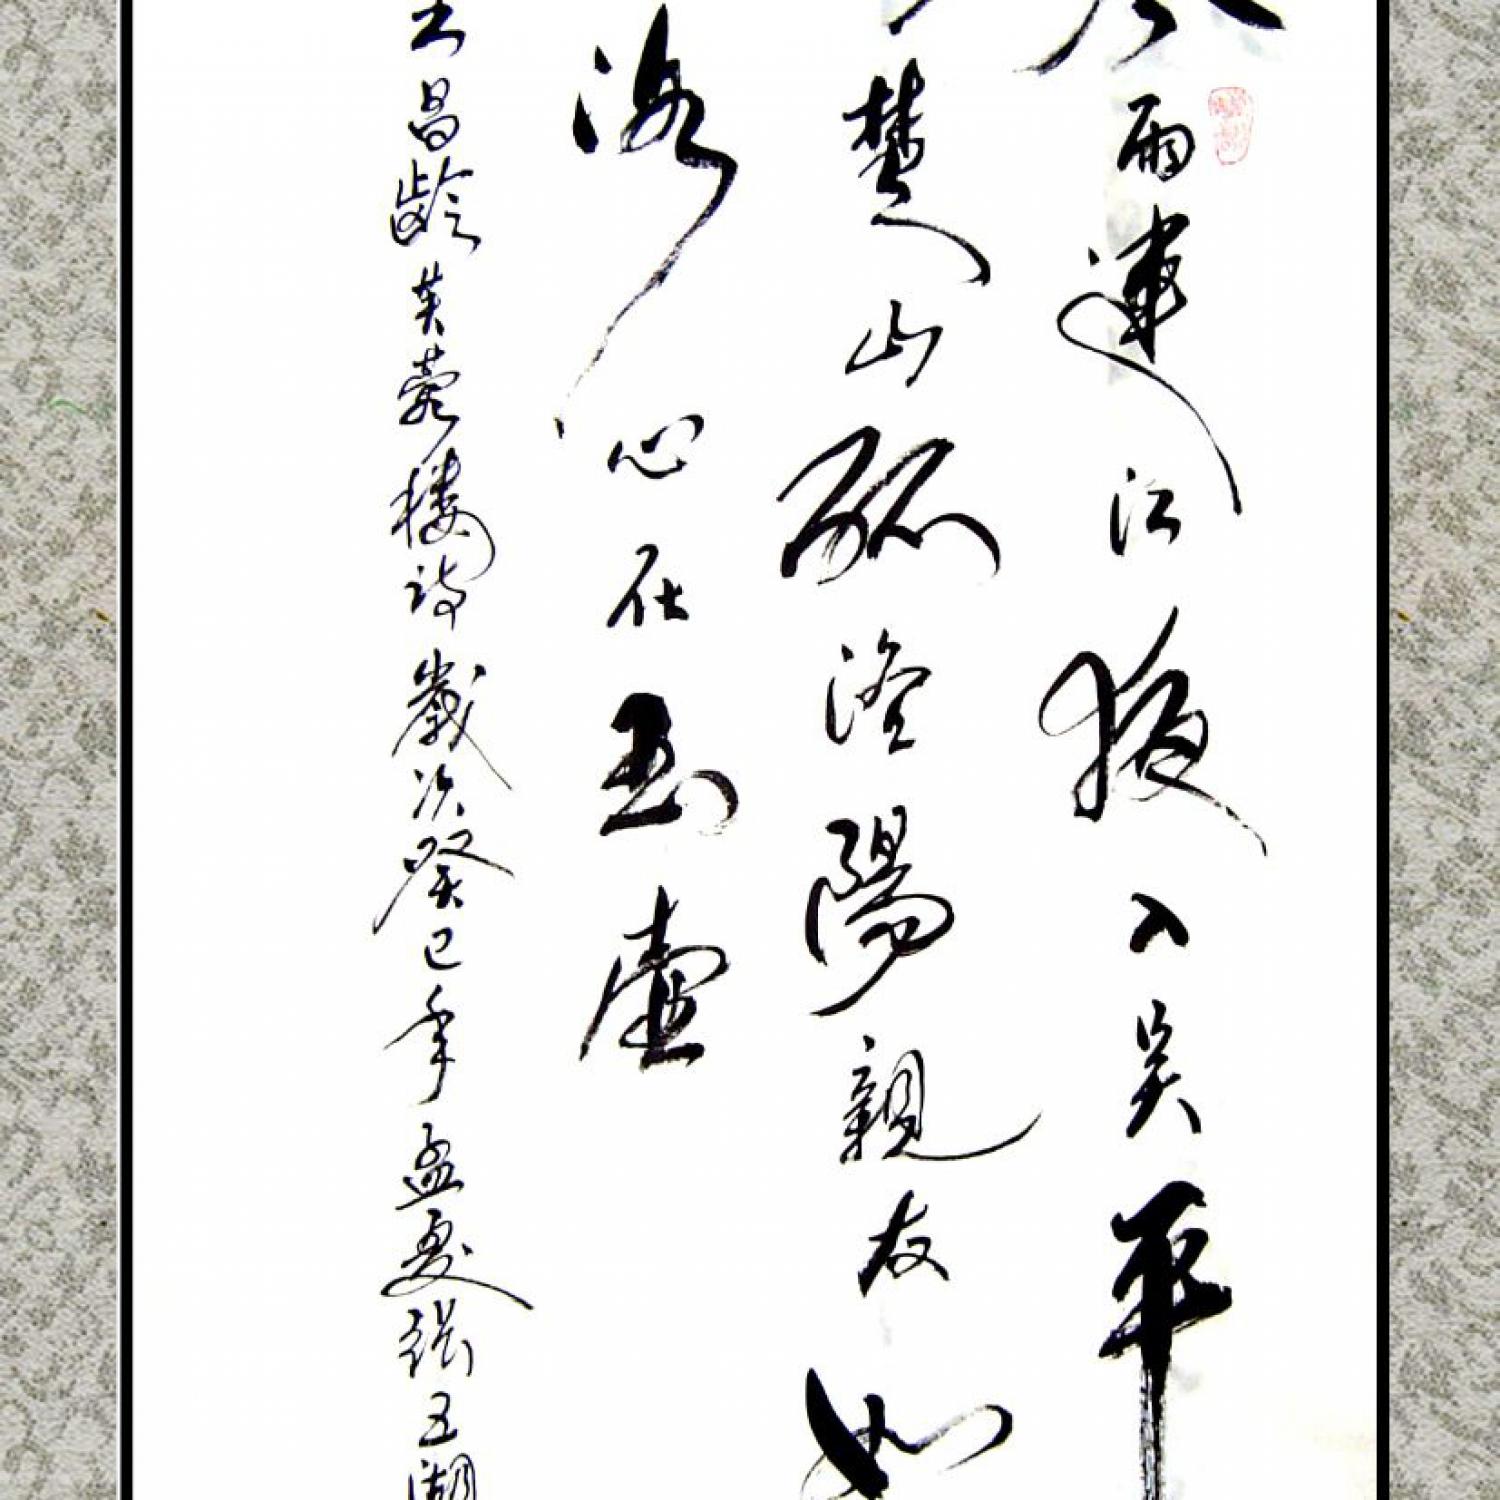 雨連江夜入吳平
楚山孤洛陽親友如
冰心在玉壺
王昌齡芙蓉樓詩歲次癸巳年孟夏張五湖